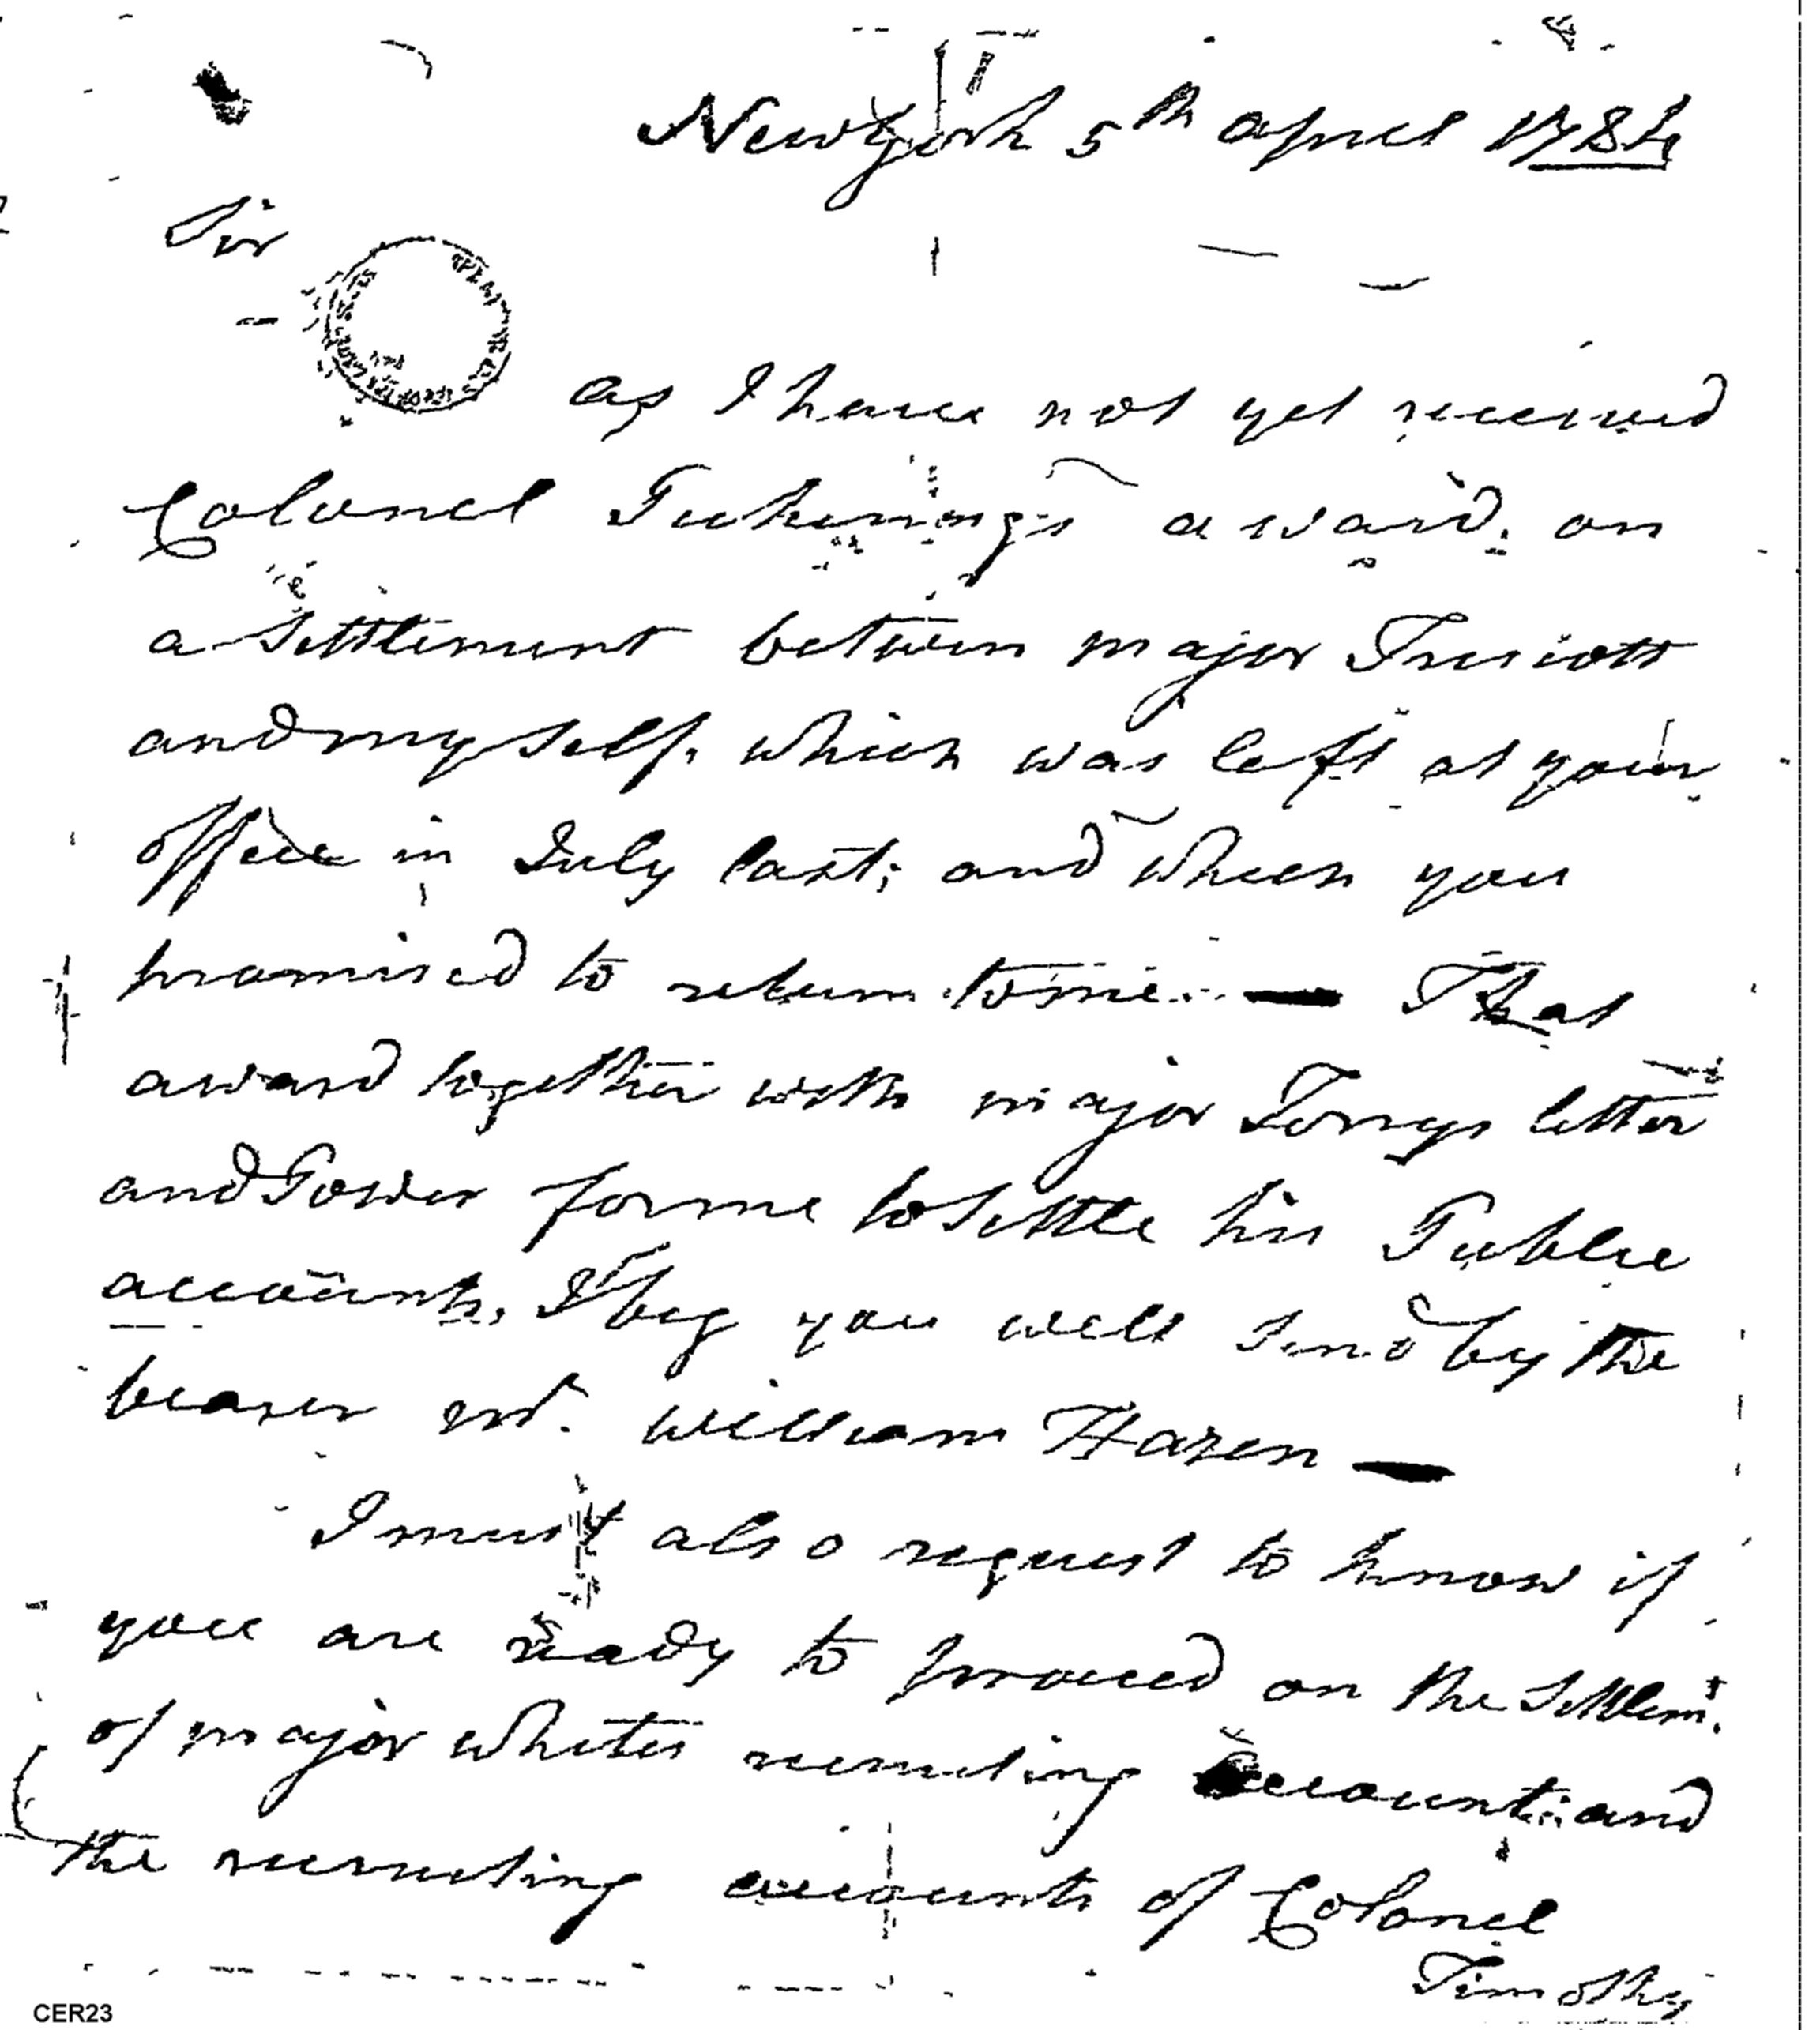 New York 5th april 1784
Sir
as I have not yet received
Colonel Pickering's award, on
a Settlement between major Trescott
and myself, which was left at your
office in July last; and which you
promised to return to me. — That
award together with major Torrys letter
and Power for me to Settle his Public
accounts, I beg you will send by the
bearer mr. William Hazen —
I must also request to know if
you are ready to proceed on the Settlemt.
of major Whites recruiting account: and
the recruiting accounts of Colonel
Timothy
CER23